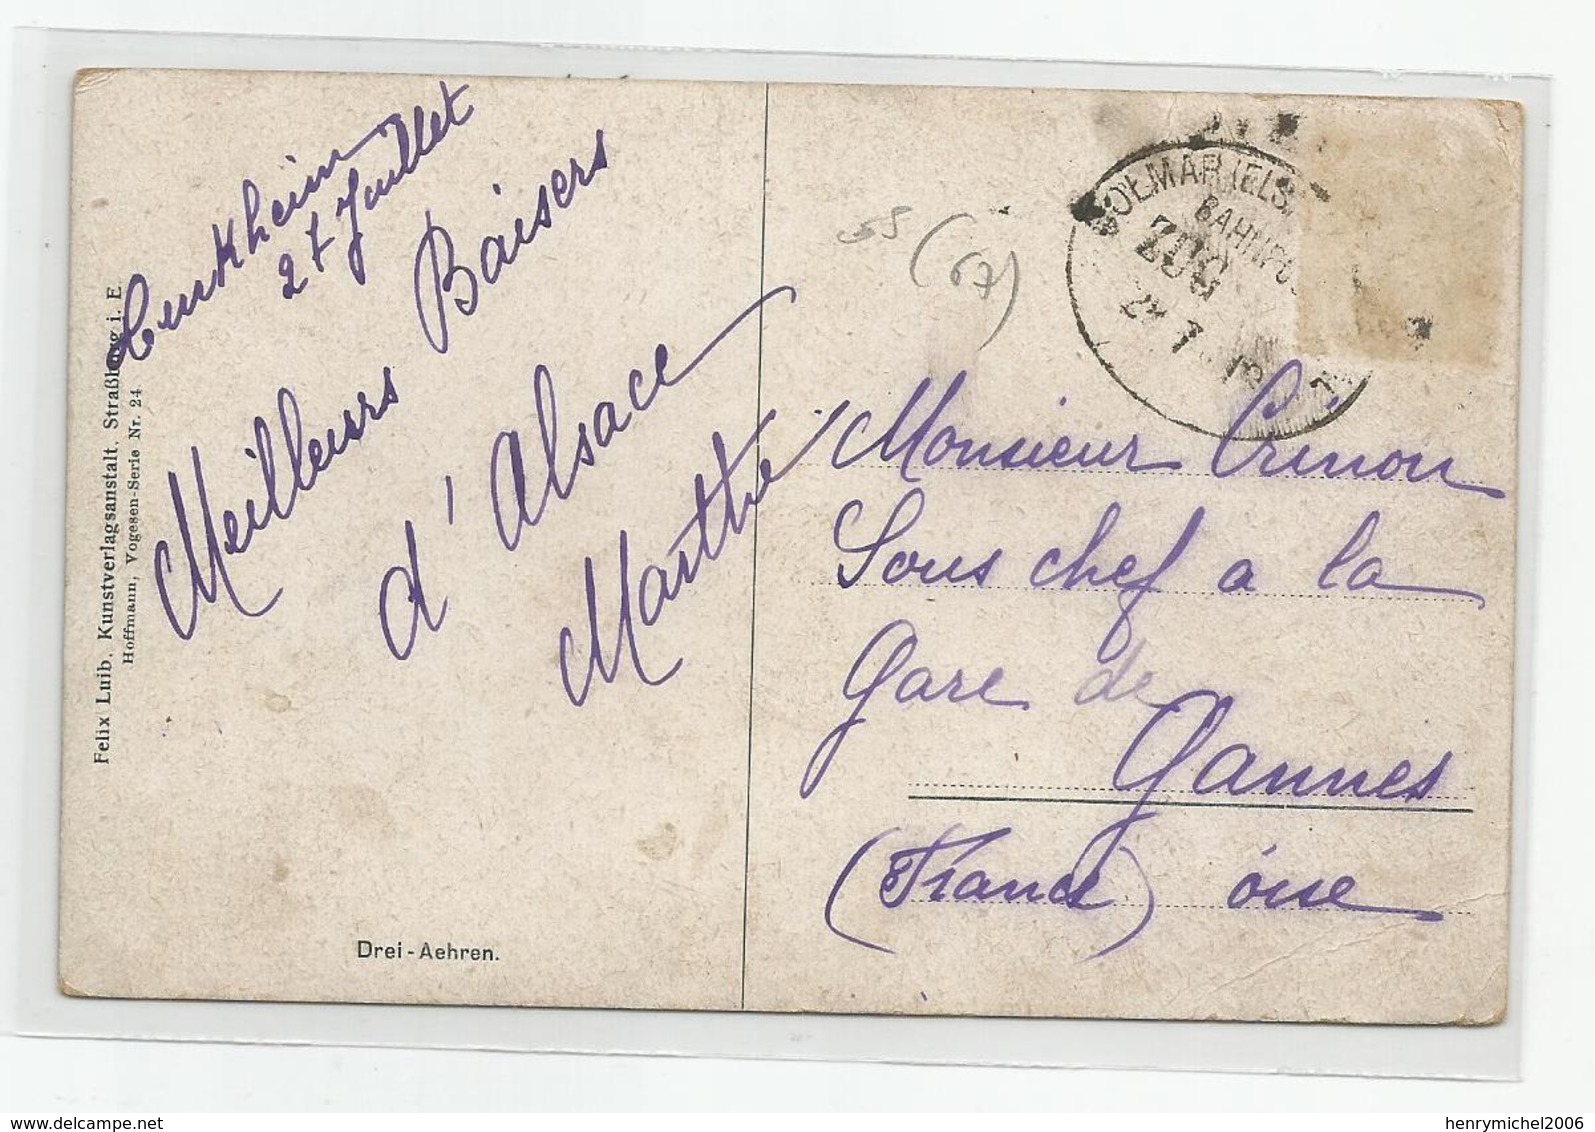 Turkheim
27 Juillet
Meilleurs Baisers
d'Alsace
Marthe
Felix Luib, Kunstverlagsanstalt, Straßburg i. E.
Hoffmann, Vogesen-Serie Nr. 24
Drei-Aehren.
55
(67)
COLMAR (ELS.
BAHNPO
ZUG
Monsieur Crinon
Sous chef a la
Gare de
Gannes
(France) Oise
henrymichel2006